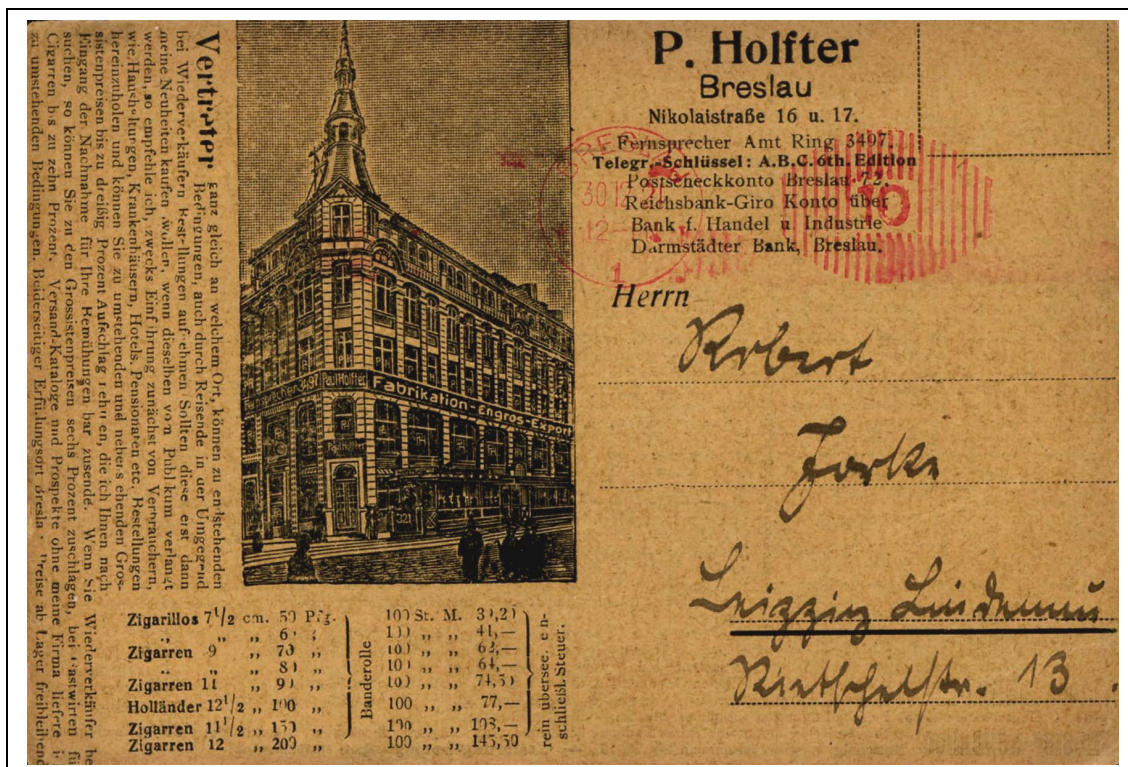 P. Holfter
Breslau
Nikolaistraße 16 u. 17.
Fernsprecher Amt Ring 3497.
Telegr.-Schlüssel: A.B.C. 6th. Edition
Postscheckkonto Breslau 72.
Reichsbank-Giro Konto über
Bank f. Handel u. Industrie
Darmstädter Bank, Breslau.
Herrn
Robert
Jorke
Leipzig Lindenau
Rietschelstr. 13.
Vertreter ganz gleich an welchem Ort, können zu enstehenden
Bedingungen, auch durch Reisende in der Umgegend
bei Wiederverkäufern Bestellungen aufnehmen Sollten diese erst dann
meine Neuheiten kaufen wollen, wenn dieselben vom Publikum verlangt
werden, so empfehle ich, zwecks Einführung zunächst von Verbrauchern,
wie Haushaltungen, Krankenhäusern, Hotels, Pensionaten etc. Bestellungen
hereinzuholen und können Sie zu umstehenden und nebenstehenden Gros-
sistenpreisen bis zu dreißig Prozent Aufschlag nehmen, die ich Ihnen nach
Eingang der Nachnahme für Ihre Bemühungen bar zusende. Wenn Sie Wiederverkäufer be-
suchen, so können Sie zu den Grossistenpreisen sechs Prozent zuschlagen, bei Gastwirten für
Cigarren bis zu zehn Prozent. Versand-Kataloge und Prospekte ohne meine Firma liefere i
zu umstehenden Bedingungen. Beiderseitiger Erfüllungsort Bresla Preise ab Lager freibleibend
Fernsprecher 3497
Paul Holfter
Fabrikation-Engros-Export
321
Zigarillos 7 1/2 cm. 50 Pfg. 100 St. M.
" " 6
Zigarren 9 " 70 " 100 " " 62,—
" " 80 " 100 " " 64,—
Zigarren 11 " 90 " 100 " " 74,50
Holländer 12 1/2 " 100 " 100 " " 77,—
Zigarren 11 1/2 " 150 " 100 " " 108,—
Zigarren 12 " 200 " 100 " " 145,50
Banderolle
rein übersee. ein-
schließl. Steuer.
BRESLAU
30 12 21
12-
1